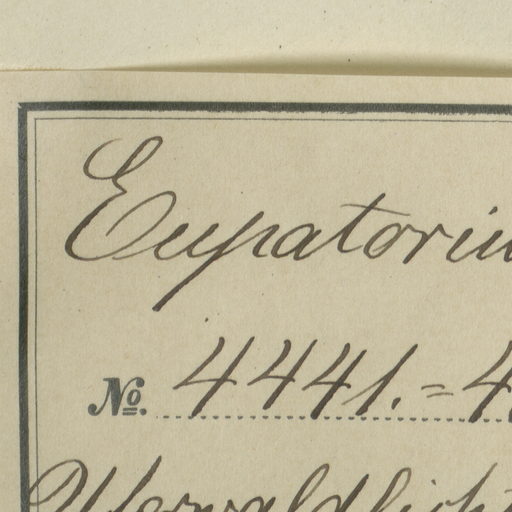 Eupatoriu
No. 4441.=4
Uferwaldlicht